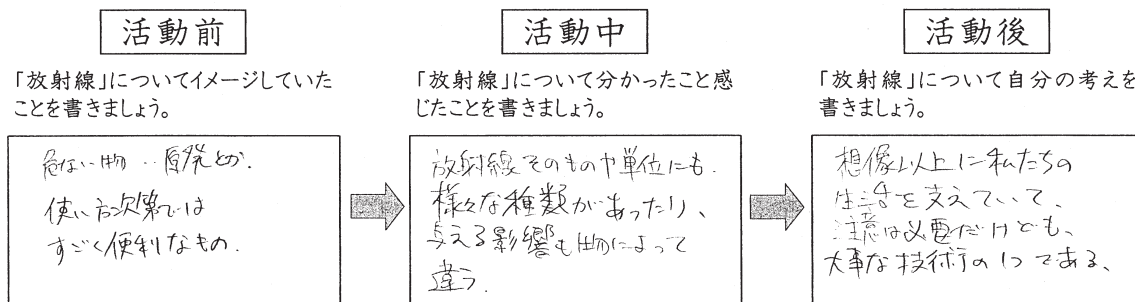 活動前
「放射線」についてイメージしていた
ことを書きましょう。
危ない物‥原発とか.
使い方次第では
すごく便利なもの.
活動中
「放射線」について分かったこと感
じたことを書きましょう。
放射線そのものや単位にも.
様々な種類があったり、
与える影響も物によって
違う.
活動後
「放射線」について自分の考えを
書きましょう。
想像以上に私たちの
生活を支えていて、
注意は必要だけども、
大事な技術の1つである、